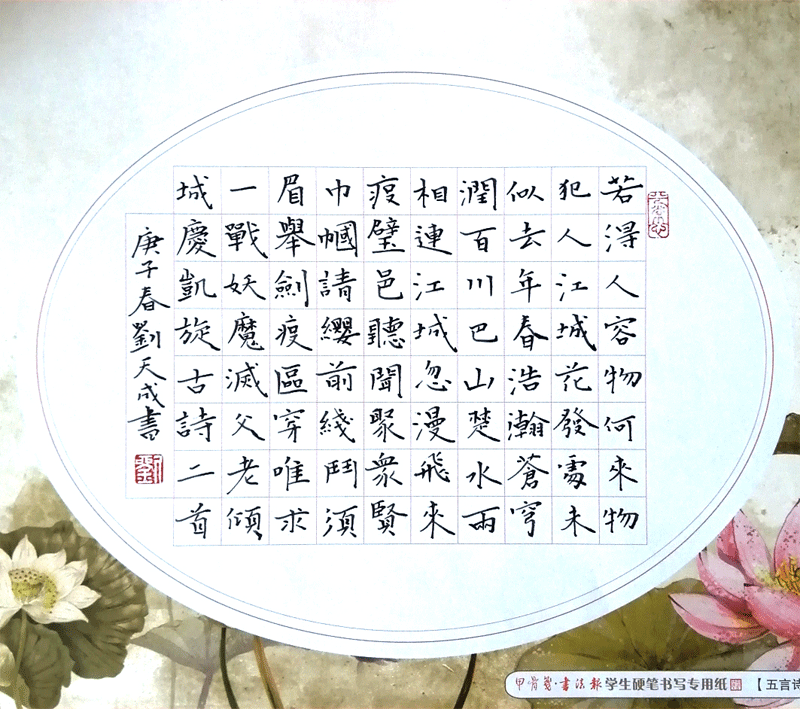 若得人容物何來物
犯人江城花發處未
似去年春浩瀚蒼穹
潤百川巴山楚水雨
相連江城忽漫飛來
疫璧邑聽聞聚衆賢
巾幗請纓前綫鬥須
眉舉劍疫區穿唯求
一戰妖魔滅父老傾
城慶凱旋古詩二首
庚子春劉天成書
甲骨箋·書法報 学生硬笔书写专用纸 【五言诗